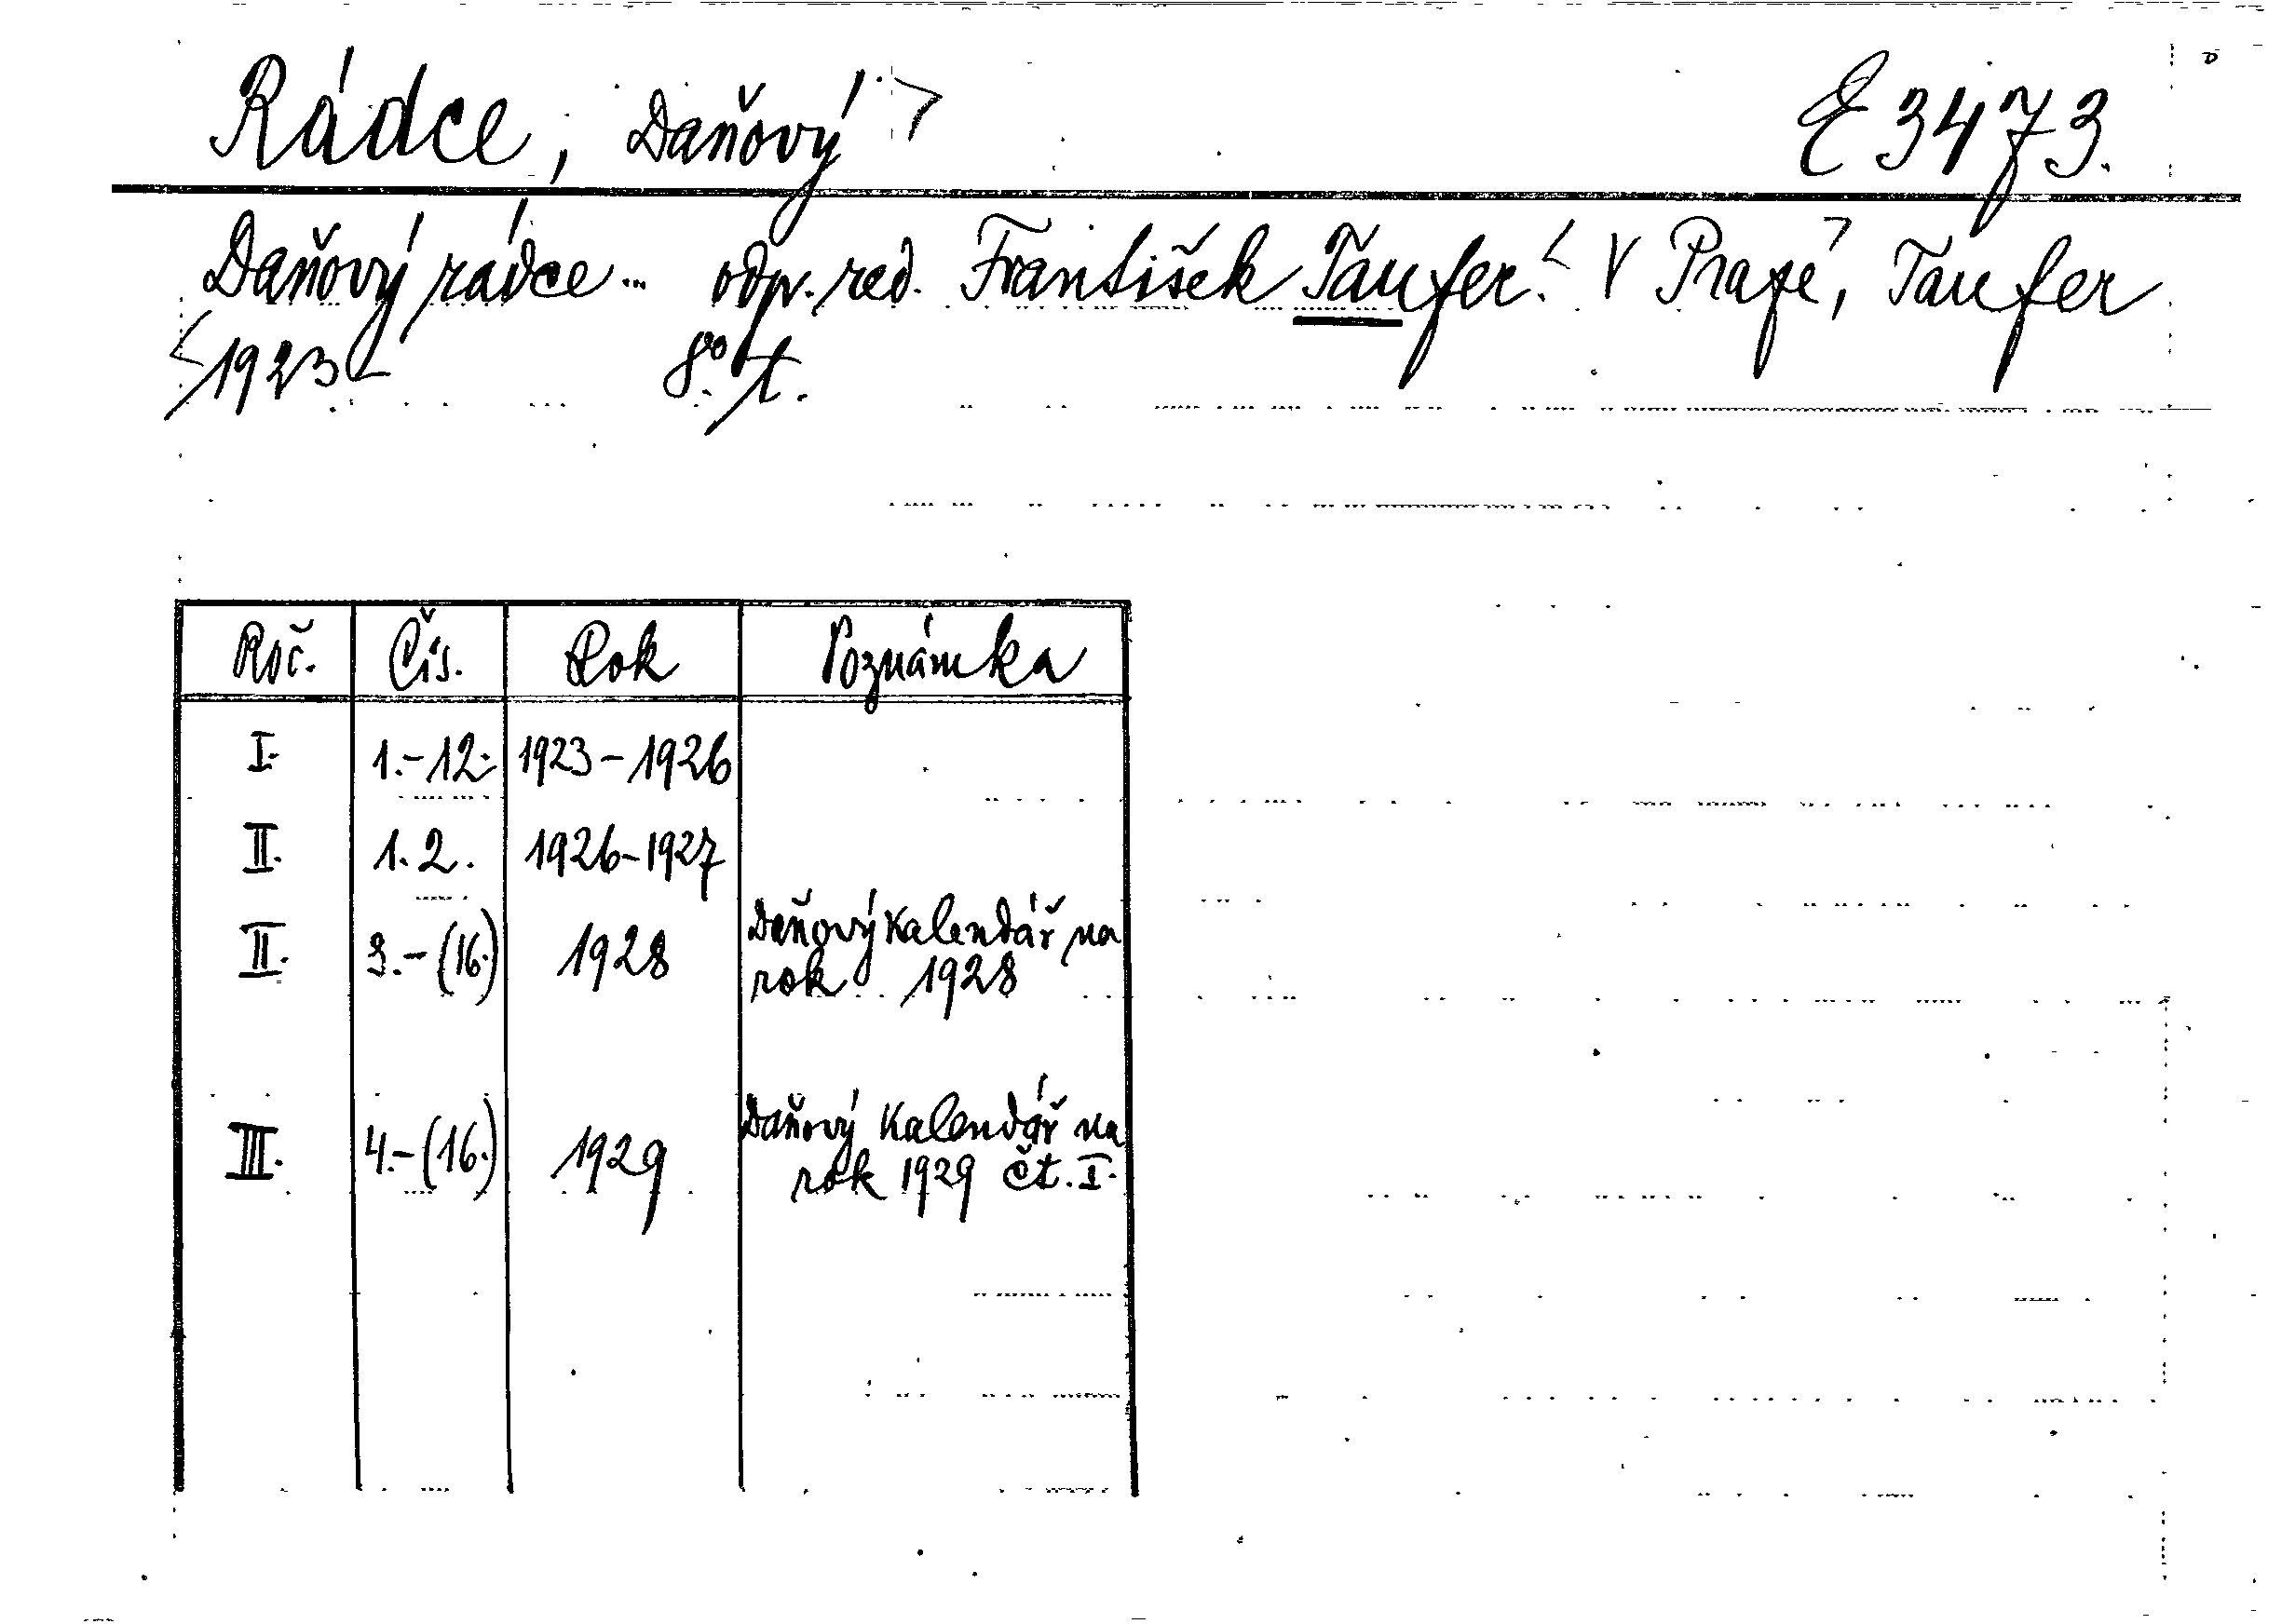 Rádce, Daňový E 3473.
Daňový rádce... odp. red. František Taufer. V Praze, Taufer
1923- 8° t.
Roč. Čís. Rok Poznámka
I. 1.-12. 1923-1926
II. 1. 2. 1926-1927
II. 3.-(16.) 1928 Daňový kalendář na
rok 1928
III. 4.-(16.) 1929 Daňový kalendář na
rok 1929 čt. I.